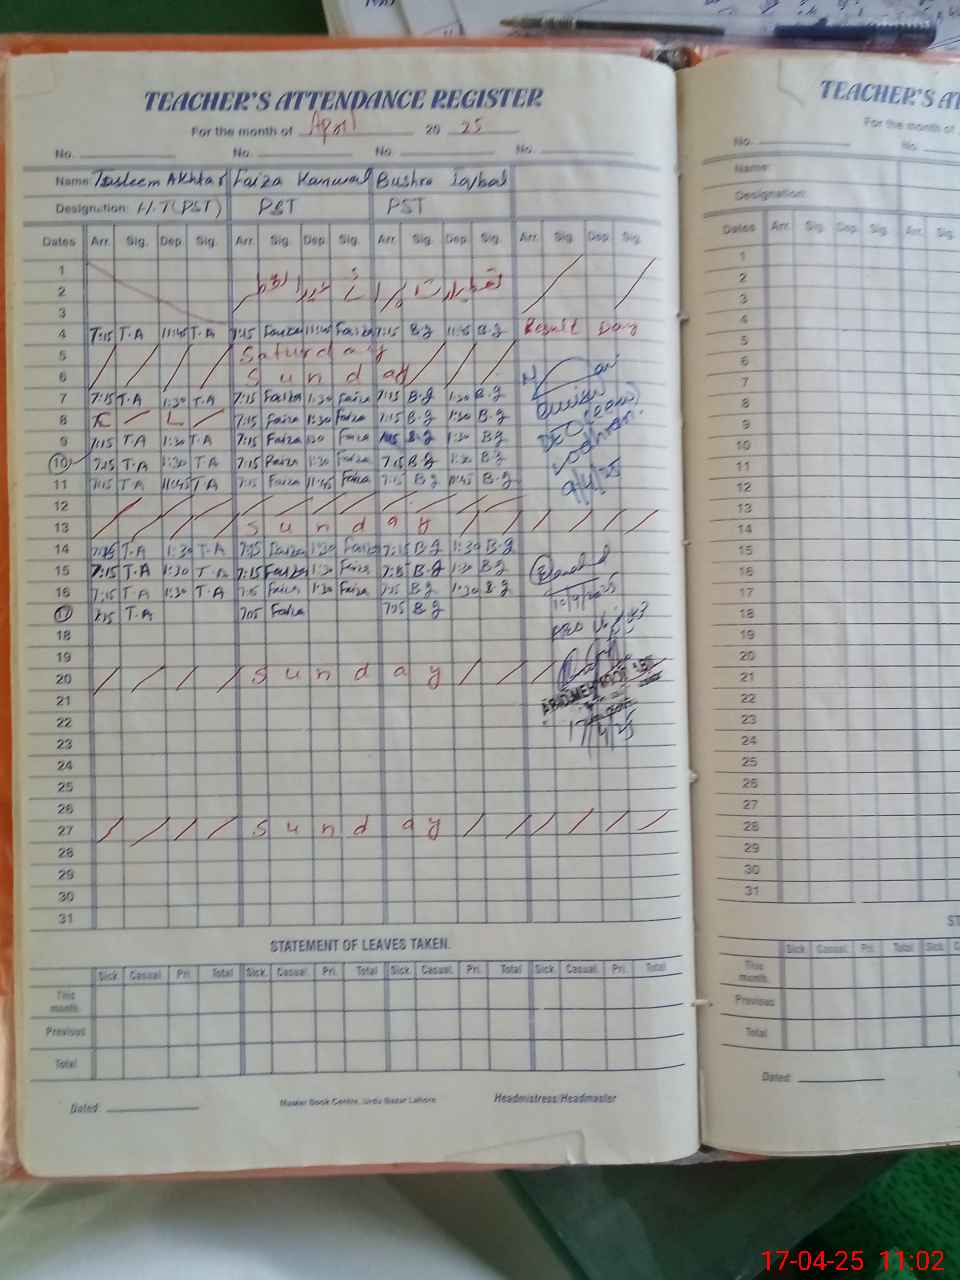 TEACHER'S ATTENDANCE REGISTER
For the month of April 20 25
No. No. No. No.
Name: Tasleem Akhtar Faiza Kanwal Bushra Iqbal
Designation: H.T(PST) PST PST
Dates Arr. Sig. Dep. Sig. Arr. Sig. Dep. Sig. Arr. Sig. Dep. Sig. Arr. Sig. Dep. Sig.
1
2
3
4 7:15 T.A 11:45 T.A 7:15 Faiza 11:45 Faiza 7:15 B.I 11:45 B.I Result Day
5 Saturday
6 Sunday
7 7:15 T.A 1:30 T.A 7:15 Faiza 1:30 Faiza 7:15 B.I 1:30 B.I
8 L 7:15 Faiza 1:30 Faiza 7:15 B.I 1:30 B.I
9 7:15 T.A 1:30 T.A 7:15 Faiza Faiza B.I 1:30 B.I
10 7:15 T.A 1:30 T.A 7:15 Faiza 1:30 Faiza 7:15 B.I 1:30 B.I
11 7:15 T.A 11:45 T.A 7:15 Faiza 11:45 Faiza 7:15 B.I 11:45 B.I
9/4/25
12
13 Sunday
14 7:15 T.A 1:30 T.A 7:15 Faiza 1:30 Faiza 7:15 B.I 1:30 B.I
15 7:15 T.A 1:30 T.A 7:15 Faiza 1:30 Faiza 7:15 B.I 1:30 B.I
16 7:15 T.A 1:30 T.A 7:15 Faiza 1:30 Faiza 7:15 B.I 1:30 B.I
17 7:15 T.A 7:15 Faiza 7:15 B.I
18
19
20 Sunday
21
22
17/4/25
23
24
25
26
27 Sunday
28
29
30
31
STATEMENT OF LEAVES TAKEN.
Sick. Casual. Pri. Total Sick. Casual. Pri. Total Sick. Casual. Pri. Total Sick. Casual. Pri. Total
This month.
Previous
Total
Dated: Master Book Centre, Urdu Bazar Lahore Headmistress/Headmaster
TEACHER'S AT
For the month of
No. No.
Name:
Designation:
Dates Arr. Sig. Dep. Sig. Arr. Sig.
1
2
3
4
5
6
7
8
9
10
11
12
13
14
15
16
17
18
19
20
21
22
23
24
25
26
27
28
29
30
31
ST
Sick. Casual. Pri. Total Sick.
This month.
Previous
Total
Dated:
17-04-25 11:02